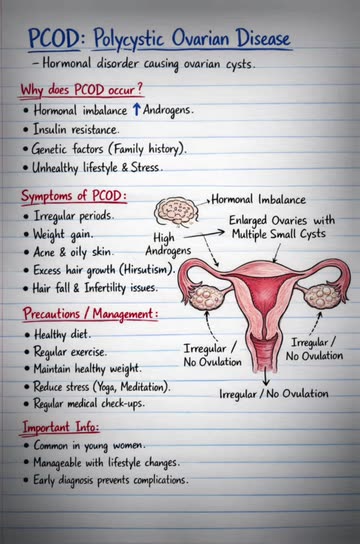 PCOD: Polycystic Ovarian Disease
– Hormonal disorder causing ovarian cysts.
Why does PCOD occur?
• Hormonal imbalance ↑ Androgens.
• Insulin resistance.
• Genetic factors (Family history).
• Unhealthy lifestyle & Stress.
Symptoms of PCOD:
• Irregular periods.
• Weight gain.
• Acne & oily skin.
• Excess hair growth (Hirsutism).
• Hair fall & Infertility issues.
Hormonal Imbalance
Enlarged Ovaries with
Multiple Small Cysts
High
Androgens
Irregular /
No Ovulation
Irregular /
No Ovulation
Irregular / No Ovulation
Precautions / Management:
• Healthy diet.
• Regular exercise.
• Maintain healthy weight.
• Reduce stress (Yoga, Meditation).
• Regular medical check-ups.
Important Info:
• Common in young women.
• Manageable with lifestyle changes.
• Early diagnosis prevents complications.